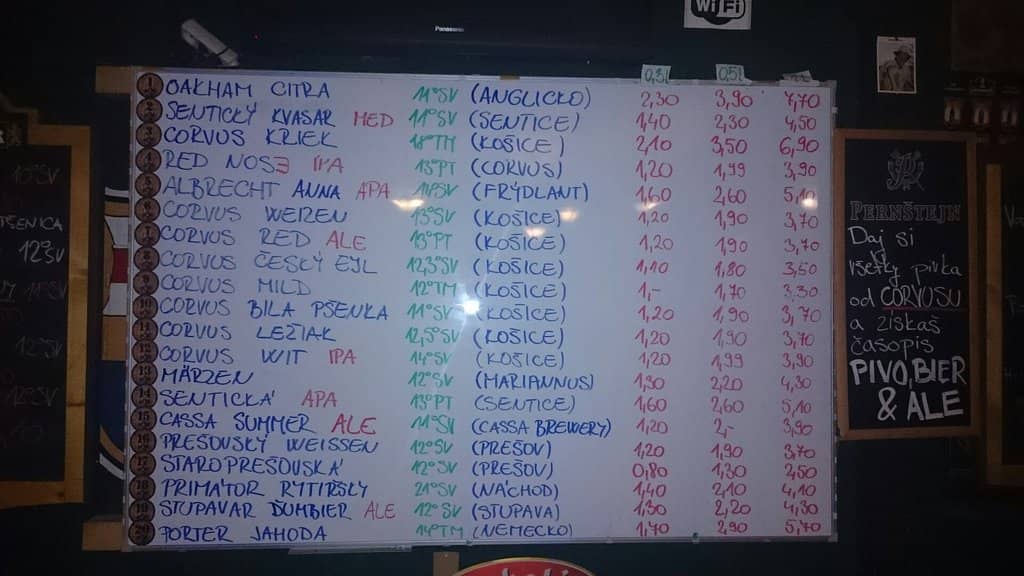 WiFi
Panasonic
0,3l 0,5l
1 OAKHAM CITRA 11°SV (ANGLICKO) 2,30 3,90 7,70
2 SENTICKÝ KVASAR MED 11°SV (SENTICE) 1,40 2,30 4,50
3 CORVUS KRIEK (KOŠICE) 2,10 3,50 6,90
4 RED NOSE IPA 13°PT (CORVUS) 1,20 1,99 3,90
5 ALBRECHT ANNA APA (FRÝDLANT) 1,60 2,60 5,10
6 CORVUS WEIZEN 13°SV (KOŠICE) 1,20 1,90 3,70
7 CORVUS RED ALE 13°PT (KOŠICE) 1,20 1,90 3,70
8 CORVUS ČESKÝ EJL 12,5°SV (KOŠICE) 1,10 1,80 3,50
9 CORVUS MILD 12°TM (KOŠICE) 1,- 1,70 3,30
10 CORVUS BILA PŠENKA 11°SV (KOŠICE) 1,20 1,90 3,70
11 CORVUS LEŽIAK 12,5°SV (KOŠICE) 1,20 1,90 3,70
12 CORVUS WIT IPA 14°SV (KOŠICE) 1,20 1,99 3,90
13 MÄRZEN 12°SV (MARIANNUS) 1,30 2,20 4,30
14 SENTICKÁ APA 13°PT (SENTICE) 1,60 2,60 5,10
15 CASSA SUMMER ALE 11°SV (CASSA BREWERY) 1,20 2,- 3,90
16 PREŠOVSKÝ WEISSEN 12°SV (PREŠOV) 1,20 1,90 3,70
17 STAROPREŠOVSKÁ 12°SV (PREŠOV) 0,80 1,30 2,50
18 PRIMÁTOR RYTIŘSKÝ 21°SV (NÁCHOD) 1,40 2,10 4,10
19 STUPAVAR ĎUMBIER ALE 12°SV (STUPAVA) 1,30 2,20 4,30
20 PORTER JAHODA 14°TM (NEMECKO) 1,70 2,90 5,70
PERNŠTEJN
Daj si
všetky pivka
od CORVUSU
a získaš
časopis
PIVO, BIER
& ALE
PŠENICA
12°SV
11°SV
12°SV